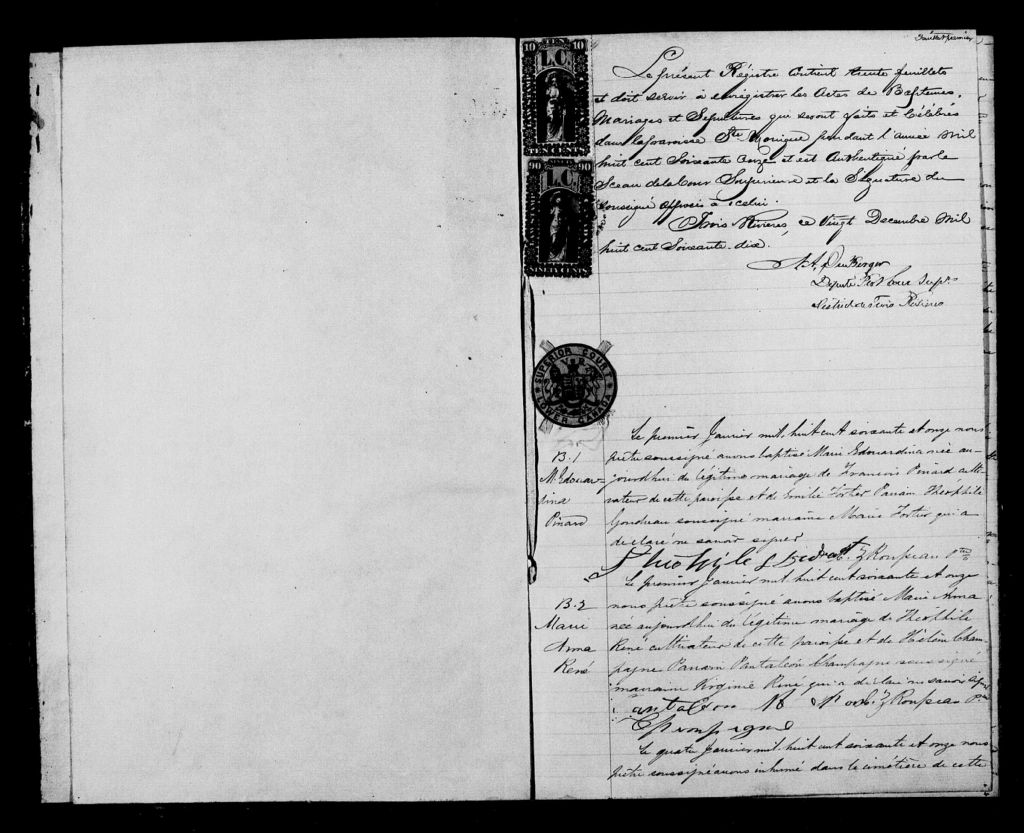 feuillet premier
10 TEN 10
L.C.
TEN CENTS
NINETY
90 90
L.C.
NINETY CENTS
Le présent Régistre contient trente feuillets
et doit servir à enrégistrer les Actes de Baptemes,
Mariages et Sépultures qui seront faits et Célébrés
dans la paroisse Ste Monique pendant l'année mil
huit cent Soixante onze et est Authentiqué par le
Sceau de la Cour Supérieure et la Signature du
soussigné apposés à icelui.
Trois Rivières, ce vingt Decembre mil
huit cent Soixante dix.
Député Prot Cour Supre
District de Trois Rivières
SUPERIOR COURT
V R
LOWER CANADA
Le premier Janvier mil huit cent soixante et onze nous
B. 1
prêtre soussigné avons baptisé Marie Edouardina née au-
M. Edouar-
jourdhui du légitime mariage de François Pinard culti-
dina
vateur de cette paroisse et de Emilie Fortier Parrain Théophile
Pinard
soussigné marraine Marie Fortier qui a
declaré ne savoir signer
Théophile Z Rousseau Ptre
Le premier Janvier mil huit cent soixante et onze
B. 2
nous prêtre soussigné avons baptisé Marie Anna
Marie
née aujourdhui du légitime mariage de Théophile
Anna
René cultivateur de cette paroisse et de Hélène Cham-
René
pagne Parrain Pantaléon Champagne soussigné
marraine Virginie René qui a déclaré ne savoir signer
Z Rousseau Ptre
Le quatre Janvier mil huit cent soixante et onze nous
prêtre soussigné avons inhumé dans le cimetière de cette